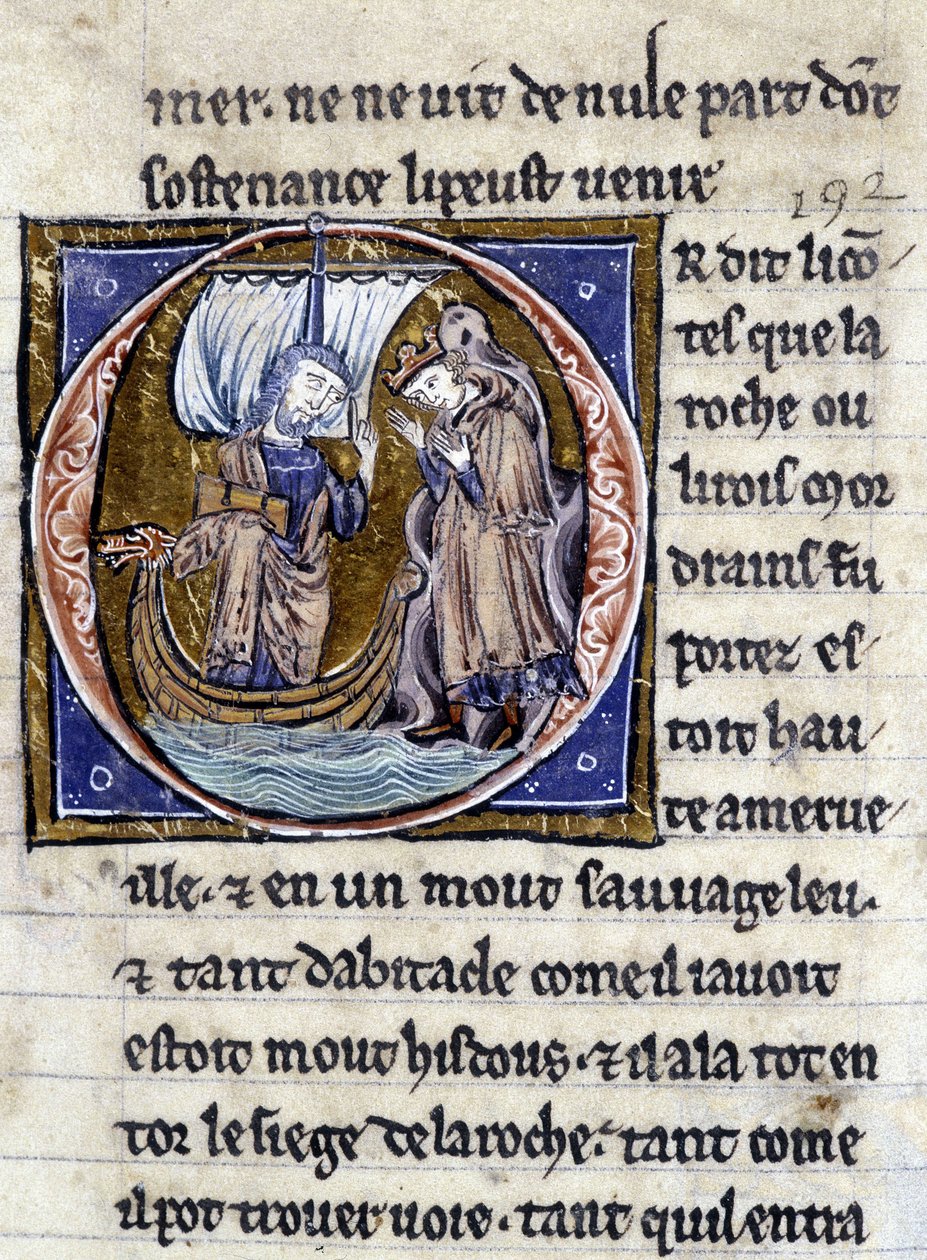 mer. ne ne uit de nule part dōt
sostenance li peust uenir
192
R dit li cō-
tes que la
roche ou
li rois mor
drains fu
portez es-
toit hau-
te a merue-
ille. ⁊ en un mout sauuage leu.
⁊ tant dabitacle come il i auoit
estoit mout hisdous. ⁊ il ala tot en
tor le siege de la roche. tant come
il pot trouer uoie. tant quil entra